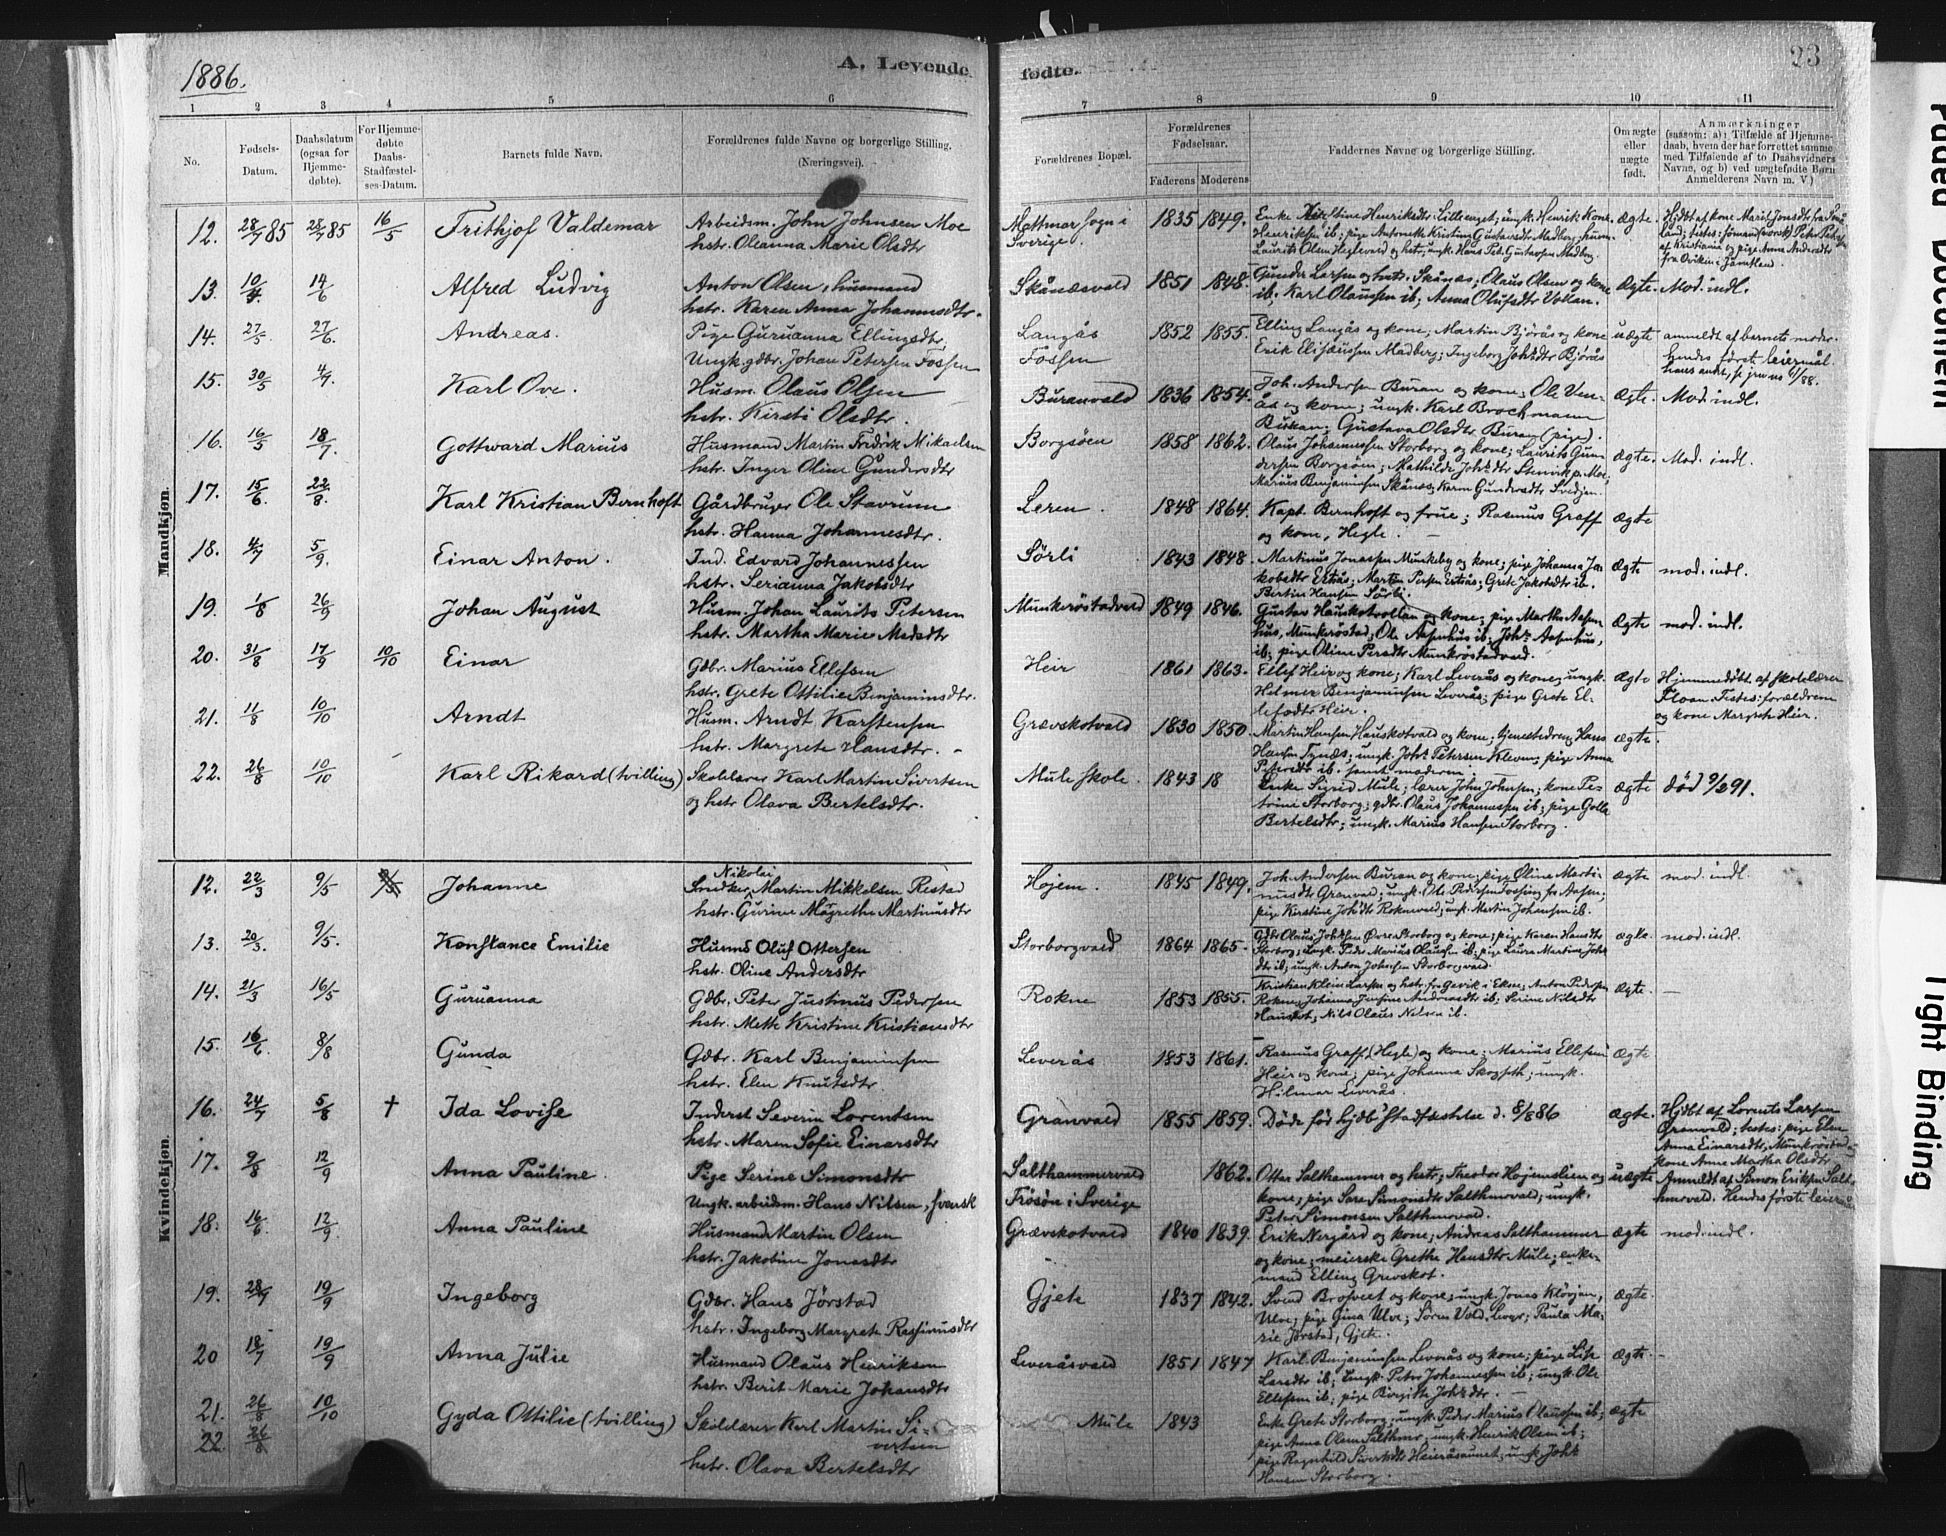 1886.
A. Levende
fødte.
23
1 2 3 4 5 6 7 8 9 10 11
No.
Fødsels-
Datum.
Daabsdatum
(ogsaa for
Hjemme-
døbte).
For Hjemme-
døbte
Daabs-
Stadfæstel-
ses-Datum.
Barnets fulde Navn.
Forældrenes fulde Navne og borgerlige Stilling.
(Næringsvei).
Forældrenes Bopæl.
Forældrenes
Fødselsaar.
Faderens Moderens
Faddernes Navne og borgerlige Stilling.
Om ægte
eller
uægte
født.
Anmærkninger
(saasom: a) i Tilfælde af Hjemme-
daab, hvem der har forrettet samme
med Tilføiende af to Daabsvidners
Navne, og b) ved uægtefødte Børn
Anmelderens Navn m. V.)
Mandkjøn.
12. 28/7 85 28/7 85 16/5 Frithjof Valdemar Arbeidsm. John Johnsen Moe
hstr. Oleanna Marie Olsdtr
Mattmar sogn i
Sverige
1835 1849.
ægte.
13. 10/4 14/6 Alfred Ludvig Anton Olsen, husmand
hstr. Karen Anna Johannesdtr.
Skånæsvald 1851 1848. Gunder Larsen og hstr. Skånæs; Olaus Olsen og kone
ib. Karl Olaussen ib; Anna Olufsdtr Vollan.
Ægte. Mod. indl.
14. 27/5 27/6 Andreas. Pige Guruanna Ellingsdtr,
Ungk. gdbr. Johan Petersen Fossen
Langås
Fossen
1852 1855. Elling Langås og kone; Martin Bjørås og kone
Erik Elisæussen Madberg; Ingeborg Johsdtr Bjørås
uægte anmeldt af barnets moder.
hendes første leiermål
15. 30/5 4/7 Karl Ove. Husm. Olaus Olsen
hstr. Kirsti Olsdtr.
Buranvald 1836 1854. Joh. Andersen Buran og kone; Ole Ven-
ås og kone; ungk. Karl Brockmann
Buran; Gustava Olsdtr Buran (pige).
Ægte. Mod. indl.
16. 16/5 18/7 Gottward Marius Husmand Martin Fredrik Mikaelsen
hstr. Inger Oline Gundersdtr
Borgsøen 1858 1862. Olaus Johannessen Storborg og kone; Laurits Gun-
dersen Borgsøen; Mathilde Johsdtr Stenvik p. Moe;
Marius Benjaminsen Skånes; Karen Gundersdtr Svedjen.
ægte. Mod. indl.
17. 15/6 22/8 Karl Kristian Bernhoft Gårdbruger Ole Stavrum
hstr. Hanna Johannesdtr.
Leren. 1848 1864. Kapt. Bernhoft og frue; Rasmus Graff
og kone, Hegle.
ægte
18. 4/7 5/9 Einar Anton. Ind. Edvard Johannessen
hstr. Serianna Jakobsdtr
Sørli 1843 1848. Martinus Jonassen Munkeby og kone; pige Johanna Ja-
kobsdtr Ertsås; Martin Persen Ertsås; Grete Jakobsdtr ib.
Bertin Hansen Sørli.
Ægte mod. indl.
19. 1/8 26/9 Johan August Husm. Johan Laurits Petersen
hstr. Martha Marie Madsdtr
Munkerøstadvald 1849 1846. Gustav Hauskotvollan og kone; pige Martha Aasen-
hus, Munkerøstad; Ole Aasenhus ib; Johs Aasenhus,
ib; pige Oline Persdtr Munkrøstadvald.
Ægte mod. indl.
20. 31/8 17/9 10/10 Einar Gdbr. Marius Ellefsen
hstr. Grete Ottilie Benjaminsdtr.
Heir 1861 1863. Ellef Heir og kone; Karl Leverås og kone; ungk.
Helmer Benjaminsen Leverås; pige Grete El-
lefsdtr Heir.
ægte Hjemmedøbt af skolelærer
Floan. Testes: forældrene
og kone Margrete Heir.
21. 11/8 10/10 Arndt Husm. Arndt Karstensen
hstr. Margrete Hansdtr.
Grævskotvald 1830 1850. Martin Hansen Hauskotvald og kone; tjenestedreng Hans
Hansen Tynes; ungk. Johs Petersen Kleven; pige Anna
Petersdtr ib. samt moderen.
ægte.
22. 26/8 10/10 Karl Rikard (tvilling) Skolelærer Karl Martin Sivertsen
og hstr Olava Bertelsdtr.
Mule skole. 1843 18 Enke Sigrid Mule; lærer John Johnsen; kone Pe-
trine Storborg; gdbr. Olaus Johannessen ib; pige Golla
Bertelsdtr; ungk. Marius Hansen Storborg.
ægte død 9/2 91.
Kvindekjøn.
12. 22/3 9/5 Johanne Snedker Nikolai Martin Mikkelsen Restad
hstr. Gurine Magrethe Martinusdtr
Højem. 1845 1849. Joh. Andersen Buran og kone; pige Oline Marti-
nusdtr Granvald; ungk. Ole Pedersen Fossing fr. Aasen;
pige Kirstine Johsdtr Roknevald; ungk. Martin Johansen ib.
ægte mod. indl.
13. 20/3 9/5. Konstance Emilie Husmd Oluf Ottersen
hstr. Oline Andersdtr
Storborgvald 1864 1865. Gdbr Olaus Johssen Øvre Storborg og kone; pige Karen Hansdtr
Storborg; ungk. Peder Marius Olaussen ib; pige Laura Martine Johs-
dtr ib; ungk. Anton Johnsen Storborgvald.
ægte. mod. indl.
14. 21/3 16/5 Guruanna Gdbr. Peter Justinus Pedersen
hstr. Mette Kristine Kristiansdtr
Rokne 1853 1855. Kristian Klein Larsen og hstr. fra Gevik i Ekne; Anton Pedersen
Rokne; Johanna Jensine Andreasdtr ib; Serine Nilsdtr
Hauskot; Nils Olaus Nilsen ib.
Ægte.
15. 16/6 8/8 Gunda Gdbr. Karl Benjaminsen
hstr. Elen Knutsdtr.
Leverås 1853 1861. Rasmus Graff (Hegle) og kone; Marius Ellefsen
Heir og kone; pige Johanna Skogseth; ungk.
Hilmar Leverås.
Ægte
16. 24/7 5/8 † Ida Lovise Inderst Severin Lorentsen
hstr. Maren Sofie Einarsdtr
Granvald 1855 1859. Døde før hjdb. stadfæstelse d. 8/8 86 ægte. Hjdbt af Lorents Larsen
Granvald; testes: pige Elen
Anna Einarsdtr, Munkrøstad og
kone Anne Martha Olsdtr
17. 9/8 12/9 Anna Pauline. Pige Serine Simonsdtr
Ungk. arbeidsm. Hans Nilsen, svensk
Salthammervald
Frösön i Sverige
1862. Otter Salthammer og hstr; Theodor Højemslien og
kone; pige Sara Simonsdtr Salthmvald; ungk.
Peter Simonsen Salthmvald.
uægte Anmeldt af Simon Eriksen Salt-
hmvald. Hendes første leierm.
18. 16/6 12/9. Anna Pauline Husmand Martin Olsen
hstr. Jakobine Jonasdtr
Grævskotvald 1840 1839. Erik Nergård og kone; Andreas Salthammer
og kone; meierske Grethe Hansdtr Mule; enke-
mand Elling Grevskot.
ægte mod. indl.
19. 28/7 19/9 Ingeborg Gdbr. Hans Jørstad
hstr. Ingeborg Margrete Rasmusdtr
Gjete 1837 1842. Svend Brosveet og kone; ungk. Jonas Kløvjan,
Ulve; pige Gina Ulve; Søren Vold, Levgr; Paula Ma-
rie Jørstad, Gjete.
ægte.
20 18/7 19/9 Anna Julie Husmand Olaus Henriksen
hstr. Berit Marie Johansdtr
Leveråsvald 1851 1847 Karl Benjaminsen Leverås og kone; pige Lise
Larsdtr ib; ungk. Peter Johannessen ib; ungk. Ole
Ellefsen ib; pige Birgitte Johsdtr.
ægte.
21. 26/8 10/10 Gyda Ottilie (tvilling) Skolelærer Karl Martin Si-
vertsen
22 26/8
hstr. Olava Bertelsdtr
Mule 1843 Enke Grete Storborg; ungk. Peder Marius Olaussen ib;
pige Anna Olsen Salthmr; ungk. Henrik Olsen ib;
pige Ragnhild Sivertsdtr Heiråsaunet; ungk. Johs
Hansen Storborg.
ægte
Faded Document
Tight Binding